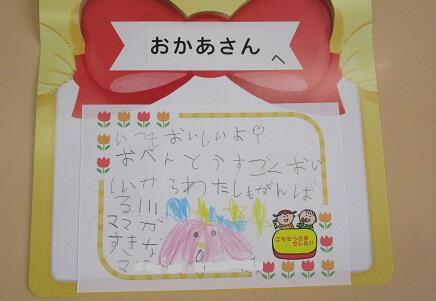 おかあさん
へ
いつもおいしいよ♡
おべんとうすごくおい
しいからわたしもがんば
る
ママが
すきな
ごちそうさま
でした!!